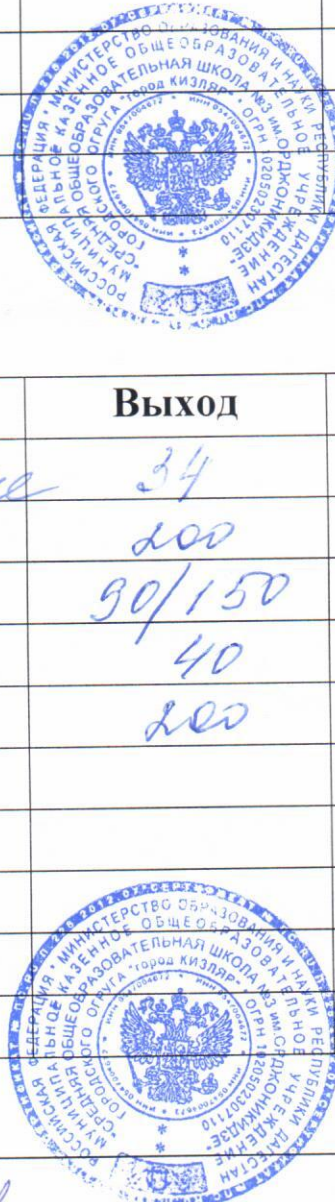 РОССИЙСКАЯ ФЕДЕРАЦИЯ * МИНИСТЕРСТВО ОБРАЗОВАНИЯ И НАУКИ РЕСПУБЛИКИ ДАГЕСТАН
МУНИЦИПАЛЬНОЕ КАЗЕННОЕ ОБЩЕОБРАЗОВАТЕЛЬНОЕ УЧРЕЖДЕНИЕ
"СРЕДНЯЯ ОБЩЕОБРАЗОВАТЕЛЬНАЯ ШКОЛА №3 ИМ. ОРДЖОНИКИДЗЕ"
ГОРОДСКОГО ОКРУГА "город КИЗЛЯР" * ОГРН 1020502307110
Выход
34
200
90/150
40
200
РОССИЙСКАЯ ФЕДЕРАЦИЯ * МИНИСТЕРСТВО ОБРАЗОВАНИЯ И НАУКИ РЕСПУБЛИКИ ДАГЕСТАН
МУНИЦИПАЛЬНОЕ КАЗЕННОЕ ОБЩЕОБРАЗОВАТЕЛЬНОЕ УЧРЕЖДЕНИЕ
"СРЕДНЯЯ ОБЩЕОБРАЗОВАТЕЛЬНАЯ ШКОЛА №3 ИМ. ОРДЖОНИКИДЗЕ"
ГОРОДСКОГО ОКРУГА "город КИЗЛЯР" * ОГРН 1020502307110